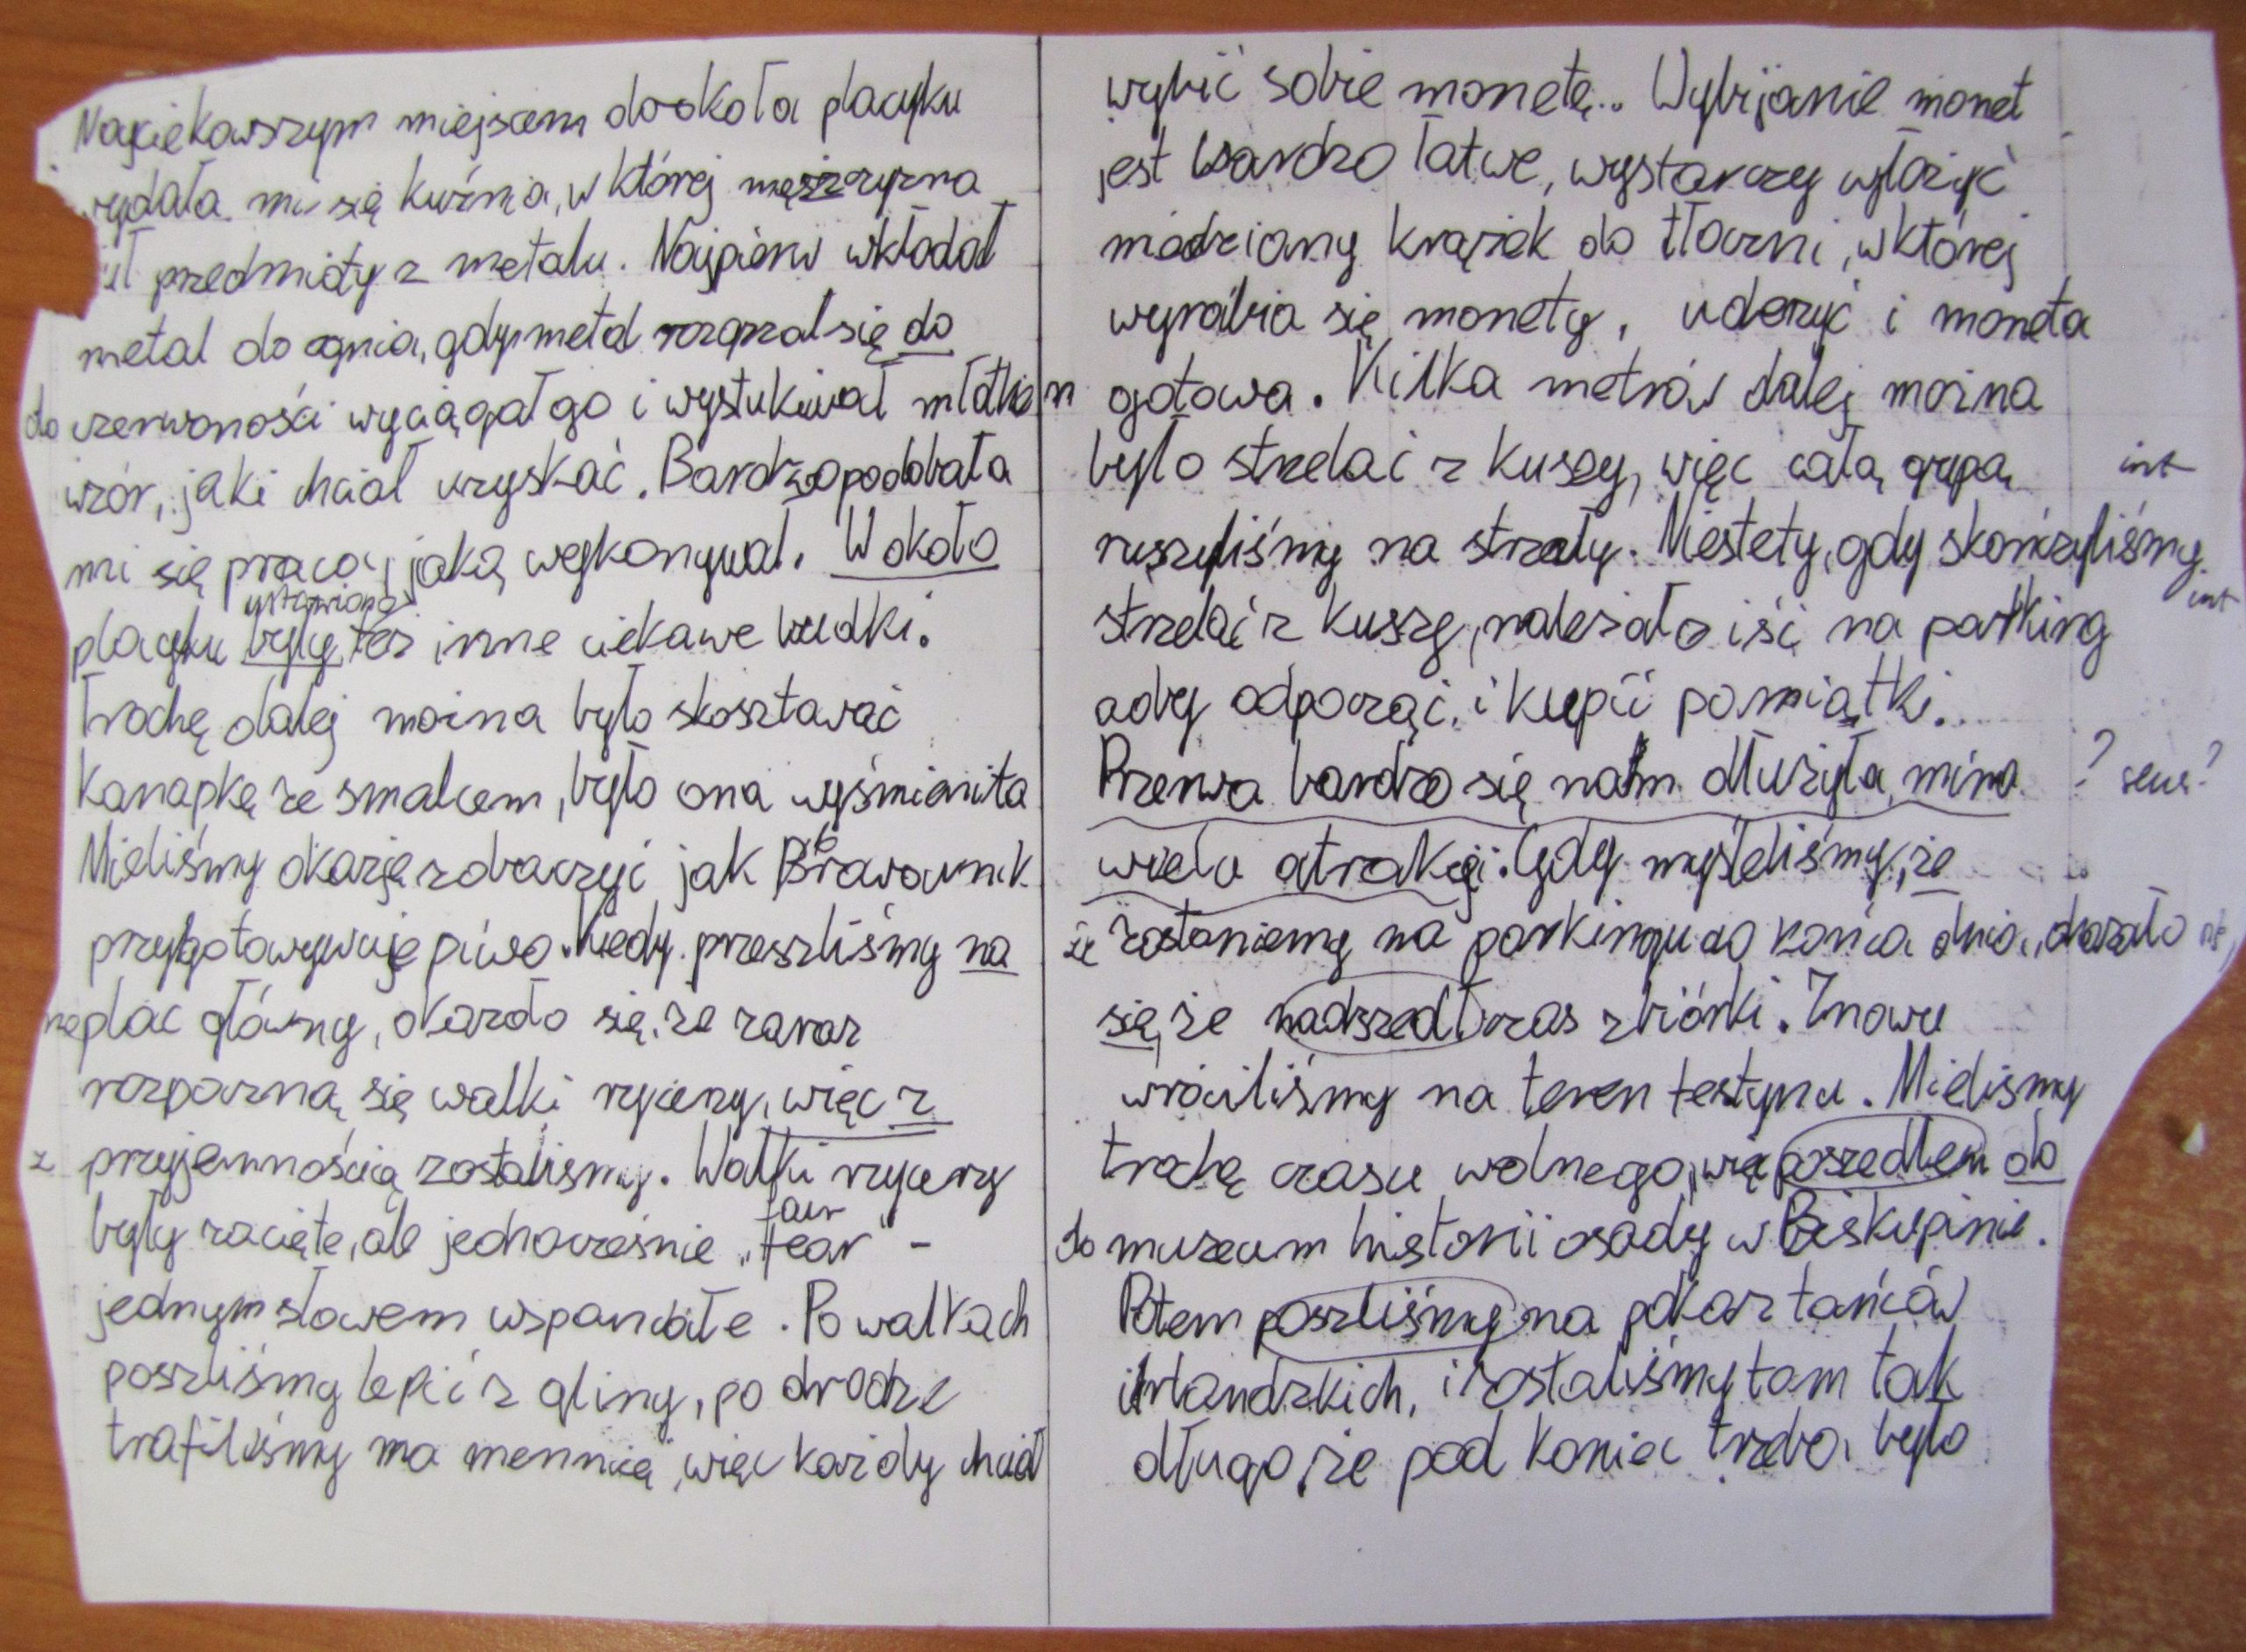 Najciekawszym miejscem dookoła placyku
wydała mi się kuźnia, w której mężczyzna
przedmioty z metalu. Najpierw wkładał
metal do ognia, gdy metal rozgrzał się do
do czerwoności wyciągał go i wystukiwał młotkiem
wzór, jaki chciał uzyskać. Bardzo podobała
mi się praca, jaką wykonywał. W około
ustawiono
placyku były też inne ciekawe budki.
Trochę dalej można było skosztować
kanapkę ze smalcem, było ona wyśmienita
Mieliśmy okazję zobaczyć jak Browarnik
przygotowywuje piwo. Kiedy przeszliśmy na
na plac główny, okazało się, że zaraz
rozpoczną się walki rycerzy, więc z
z przyjemnością zostaliśmy. Walki rycerzy
fair
były zacięte, ale jednocześnie „fear" -
jednym słowem wspaniałe. Po walkach
poszliśmy lepić z gliny, po drodze
trafiliśmy na mennicę, więc każdy chciał
wybić sobie monetę.. Wybijanie monet
jest bardzo łatwe, wystarczy włożyć
miedziany krążek do tłoczni, w której
wyrabia się monety, uderzyć i moneta
gotowa. Kilka metrów dalej można
było strzelać z kuszy, więc całą grupą int
ruszyliśmy na strzały. Niestety, gdy skończyliśmy
strzelać z kuszy, należało iść na parking int
aby odpocząć, i kupić pamiątki..
Przerwa bardzo się nam dłużyła, mimo ? sens?
wielu atrakcji. Gdy myśleliśmy, że
że zostaniemy na parkingu do końca dnia, okazało
się, że nadszedł czas zbiórki. Znowu
wróciliśmy na teren festynu. Mieliśmy
trochę czasu wolnego, więc poszedłem do
do muzeum historii osady w Biskupinie.
Potem poszliśmy na pokaz tańców
irlandzkich, i zostaliśmy tam tak
długo, że pod koniec trzeba było